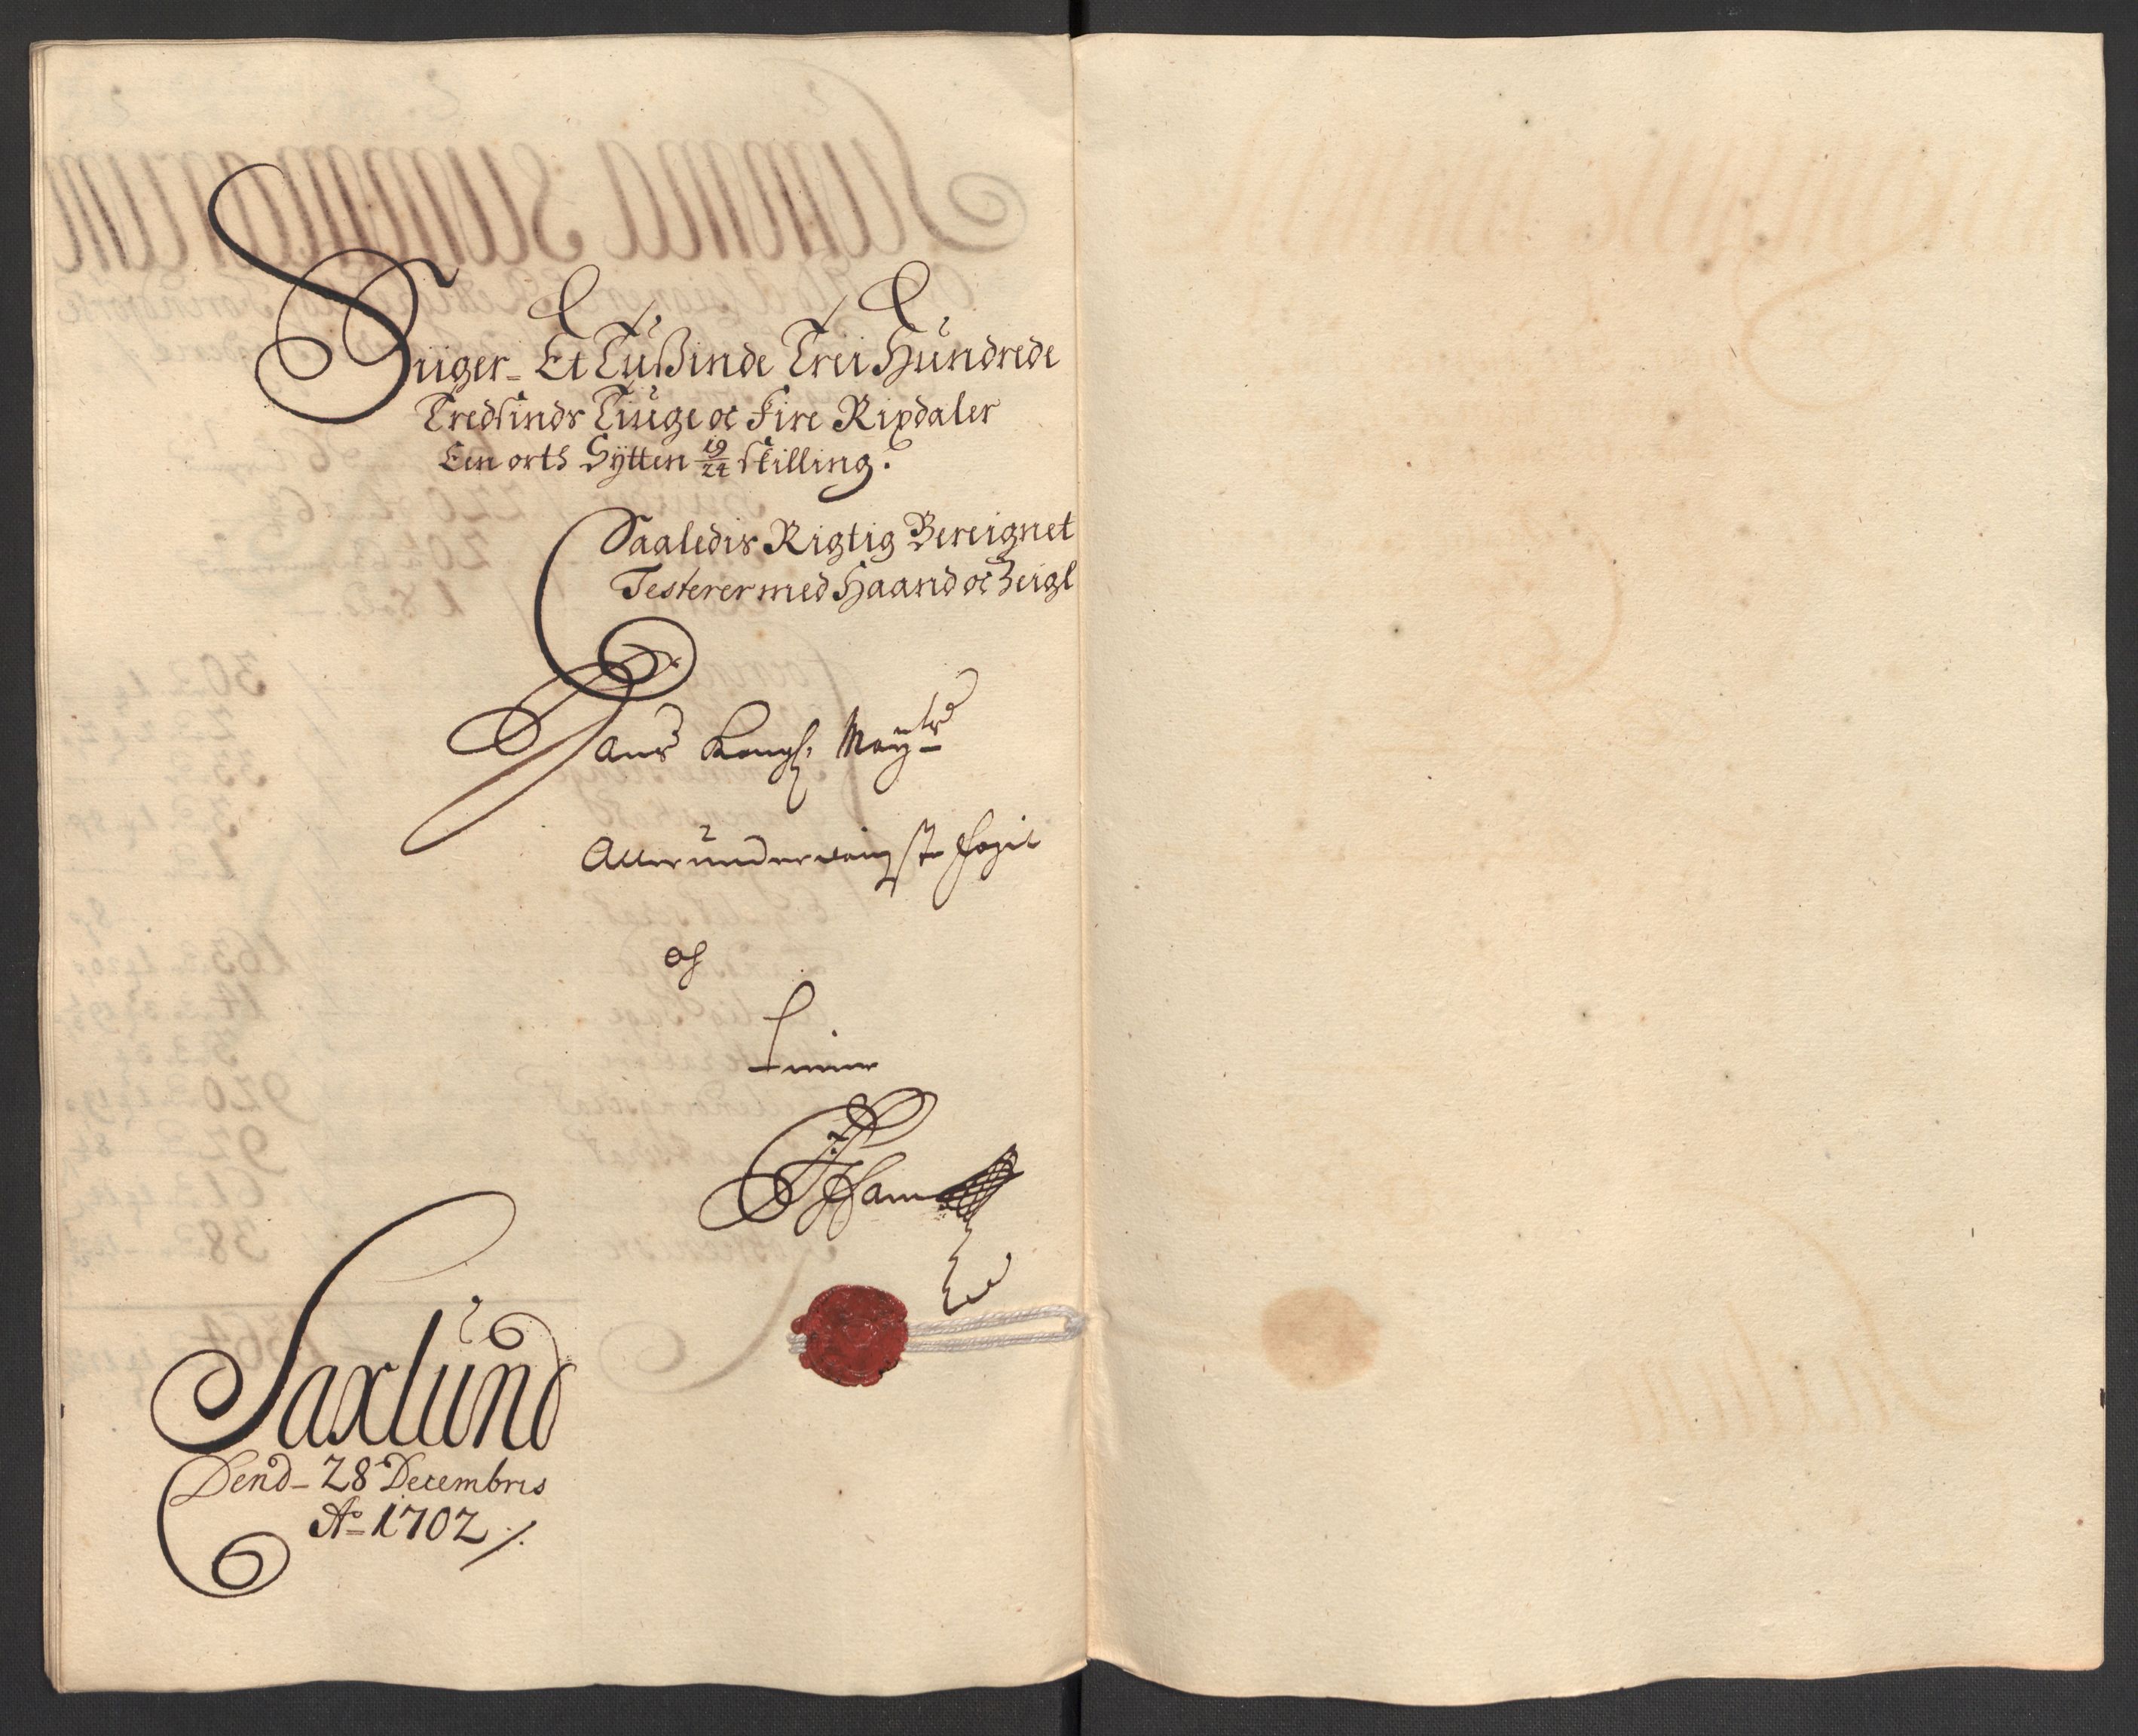 Siiger Et Tußinde Trei Hundrede
Tredsinds Tiuge oc Fire Rixdaler
Een orth Sÿtten 19/24 skilling.
Saaledis Rigtig Bereignet
Testerer med Haand oc Zeigl
Hans Kongl: Mayts
Allerunderdanigste Fogit
og
Tiener
Saxlund
Dend 28 Decembris
Ao 1702 /.